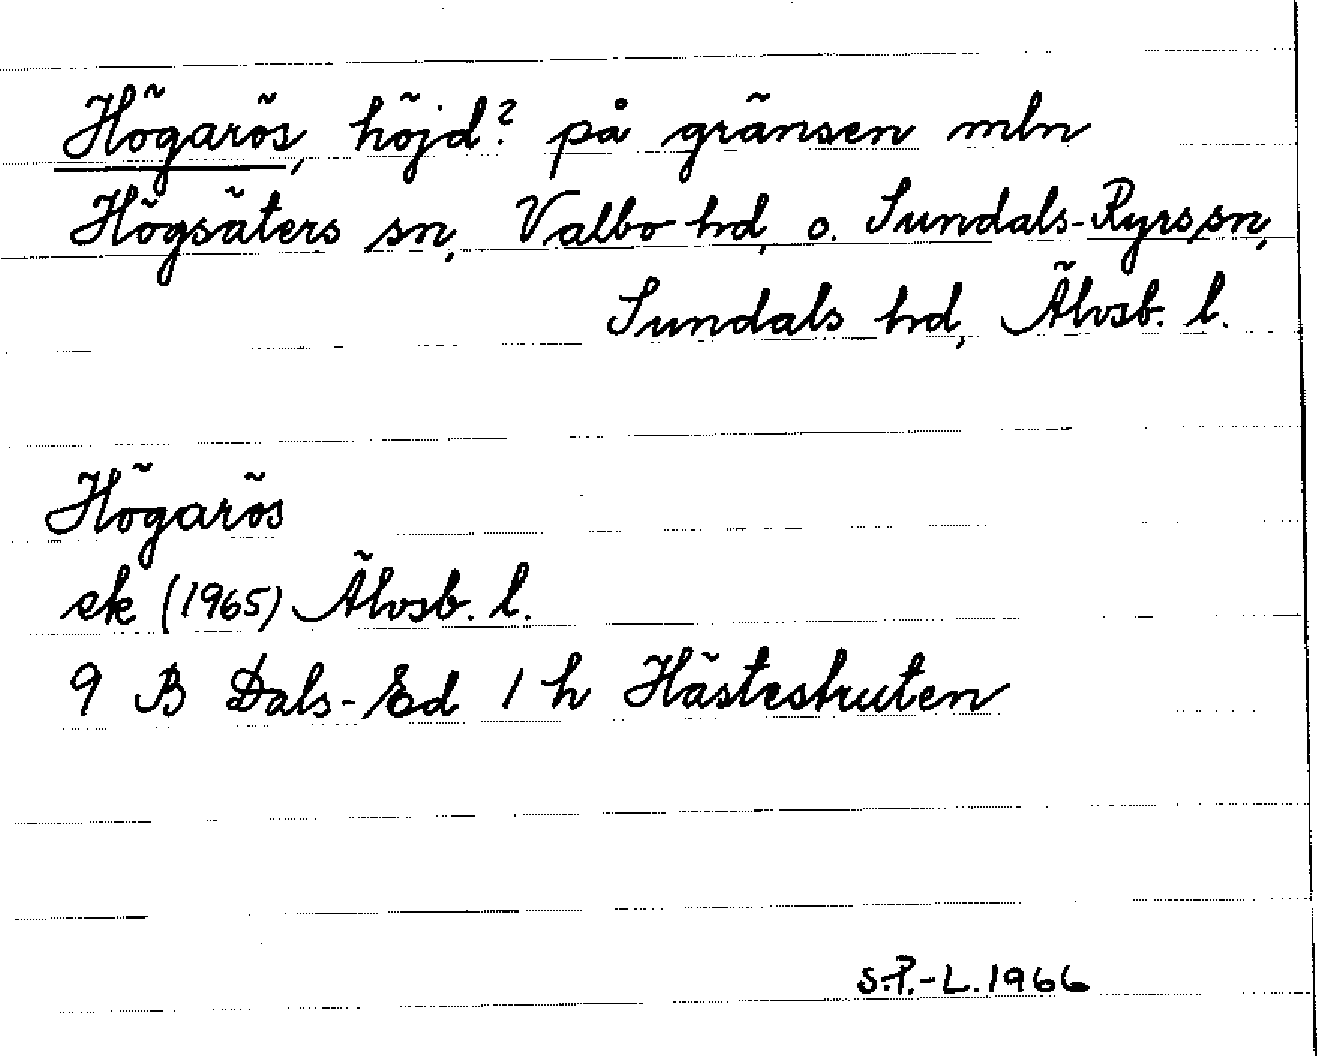 Högarös, höjd? på gränsen mln
Högsäters sn, Valbo hd, o. Sundals-Ryrs sn,
Sundals hd, Älvsb. l.
Högarös
ek (1965) Älvsb. l.
9 B Dals-Ed 1 h Hästeskuten
S.P.-L. 1966